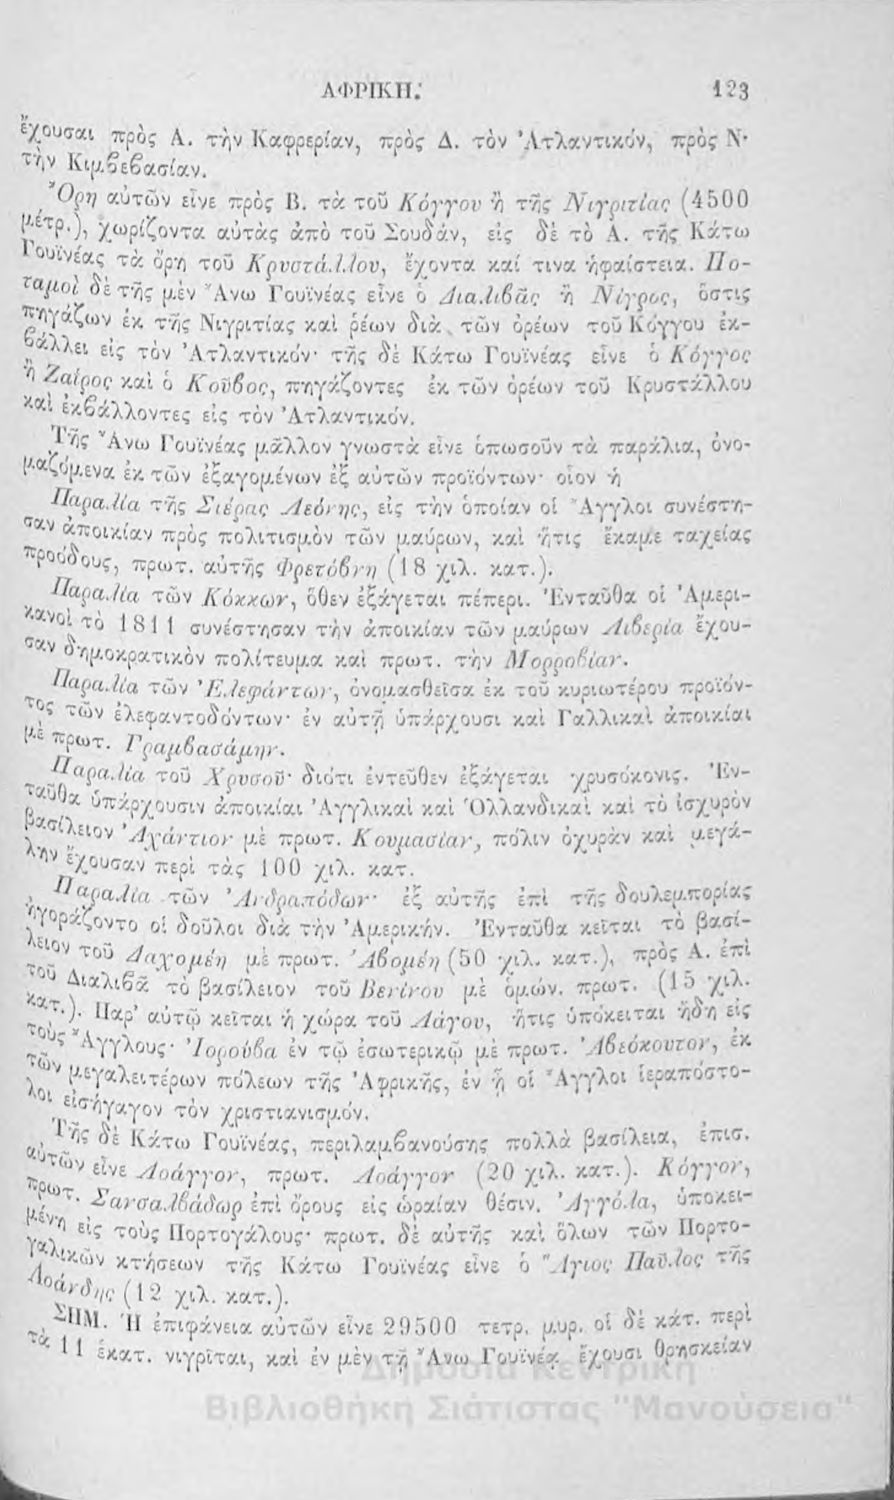 ΑΦΡΙΚΗ. 123
ἔχουσαι πρὸς Α. τὴν Καφρερίαν, πρὸς Δ. τὸν Ἀτλαντικόν, πρὸς Ν·
τὴν Κιμβεβασίαν.
Ὄρη αὐτῶν εἶνε πρὸς Β. τὰ τοῦ Κόγγου ἢ τῆς Νιγριτίας (4500
μέτρ.), χωρίζοντα αὐτὰς ἀπὸ τοῦ Σουδάν, εἰς δὲ τὸ Α. τῆς Κάτω
Γουϊνέας τὰ ὄρη τοῦ Κρυστάλλου, ἔχοντα καί τινα ἡφαίστεια. Πο-
ταμοὶ δὲ τῆς μὲν Ἄνω Γουϊνέας εἶνε ὁ Διαλιβᾶς ἢ Νίγρος, ὅστις
πηγάζων ἐκ τῆς Νιγριτίας καὶ ῥέων διὰ τῶν ὀρέων τοῦ Κόγγου ἐκ-
βάλλει εἰς τὸν Ἀτλαντικόν· τῆς δὲ Κάτω Γουϊνέας εἶνε ὁ Κόγγος
ἢ Ζαίρος καὶ ὁ Κοῦβος, πηγάζοντες ἐκ τῶν ὀρέων τοῦ Κρυστάλλου
καὶ ἐκβάλλοντες εἰς τὸν Ἀτλαντικόν.
Τῆς Ἄνω Γουϊνέας μᾶλλον γνωστὰ εἶνε ὁπωσοῦν τὰ παράλια, ὀνο-
μαζόμενα ἐκ τῶν ἐξαγομένων ἐξ αὐτῶν προϊόντων· οἷον ἡ
Παραλία τῆς Σιέρας Λεόνης, εἰς τὴν ὁποίαν οἱ Ἄγγλοι συνέστη-
σαν ἀποικίαν πρὸς πολιτισμὸν τῶν μαύρων, καὶ ἥτις ἔκαμε ταχείας
προόδους, πρωτ. αὐτῆς Φρετόβνη (18 χιλ. κατ.).
Παραλία τῶν Κόκκων, ὅθεν ἐξάγεται πέπερι. Ἐνταῦθα οἱ Ἀμερι-
κανοὶ τὸ 1811 συνέστησαν τὴν ἀποικίαν τῶν μαύρων Λιβερία ἔχου-
σαν δημοκρατικὸν πολίτευμα καὶ πρωτ. τὴν Μορροβίαν.
Παραλία τῶν Ἐλεφάντων, ὀνομασθεῖσα ἐκ τοῦ κυριωτέρου προϊόν-
τος τῶν ἐλεφαντοδόντων· ἐν αὐτῇ ὑπάρχουσι καὶ Γαλλικαὶ ἀποικίαι
μὲ πρωτ. Γραμβασάμην.
Παραλία τοῦ Χρυσοῦ· διότι ἐντεῦθεν ἐξάγεται χρυσόκονις. Ἐν-
ταῦθα ὑπάρχουσιν ἀποικίαι Ἀγγλικαὶ καὶ Ὁλλανδικαὶ καὶ τὸ ἰσχυρὸν
βασίλειον Ἀχάντιον μὲ πρωτ. Κουμασίαν, πόλιν ὀχυρὰν καὶ μεγά-
λην ἔχουσαν περὶ τὰς 100 χιλ. κατ.
Παραλία τῶν Ἀνδραπόδων· ἐξ αὐτῆς ἐπὶ τῆς δουλεμπορίας
ἠγοράζοντο οἱ δοῦλοι διὰ τὴν Ἀμερικήν. Ἐνταῦθα κεῖται τὸ βασί-
λειον τοῦ Δαχομέη μὲ πρωτ. Ἀβομέη (50 χιλ. κατ.), πρὸς Α. ἐπὶ
τοῦ Διαλιβᾶ τὸ βασίλειον τοῦ Βενίνου μὲ ὁμών. πρωτ. (15 χιλ.
κατ.). Παρ' αὐτῷ κεῖται ἡ χώρα τοῦ Λάγου, ἥτις ὑπόκειται ἤδη εἰς
τοὺς Ἄγγλους· Ἰορούβα ἐν τῷ ἐσωτερικῷ μὲ πρωτ. Ἀβεόκουτον, ἐκ
τῶν μεγαλειτέρων πόλεων τῆς Ἀφρικῆς, ἐν ᾗ οἱ Ἄγγλοι ἱεραπόστο-
λοι εἰσήγαγον τὸν χριστιανισμόν.
Τῆς δὲ Κάτω Γουϊνέας, περιλαμβανούσης πολλὰ βασίλεια, ἐπισ.
αὐτῶν εἶνε Λοάγγον, πρωτ. Λοάγγον (20 χιλ. κατ.). Κόγγον,
πρωτ. Σανσαλβάδωρ ἐπὶ ὄρους εἰς ὡραίαν θέσιν. Ἀγγόλα, ὑποκει-
μένη εἰς τοὺς Πορτογάλους· πρωτ. δὲ αὐτῆς καὶ ὅλων τῶν Πορτο-
γαλικῶν κτήσεων τῆς Κάτω Γουϊνέας εἶνε ὁ Ἅγιος Παῦλος τῆς
Λοάνδης (12 χιλ. κατ.).
ΣΗΜ. Ἡ ἐπιφάνεια αὐτῶν εἶνε 29500 τετρ. μυρ. οἱ δὲ κάτ. περὶ
τὰ 11 ἑκατ. νιγρῖται, καὶ ἐν μὲν τῇ Ἄνω Γουϊνέᾳ ἔχουσι θρησκείαν
Δημόσια Κεντρική
Βιβλιοθήκη Σιάτιστας "Μανούσεια"